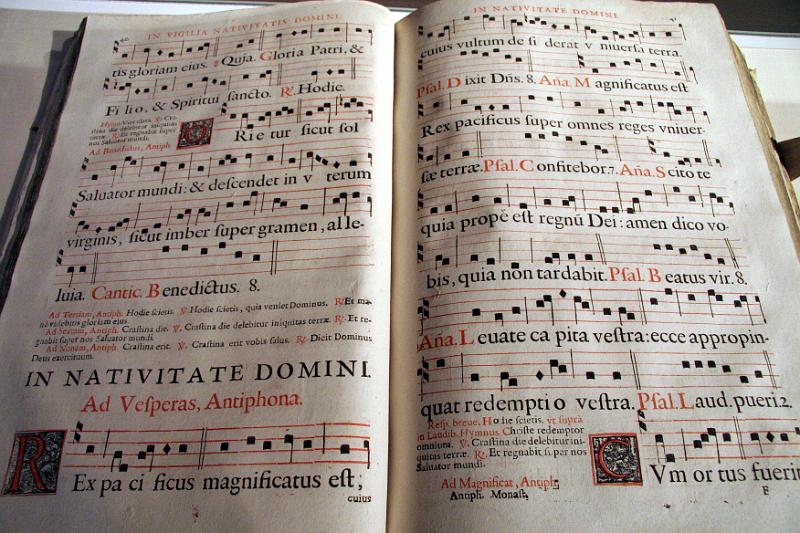 IN VIGILIA NATIVITATIS DOMINI.
tis gloriam eius. Quia. Gloria Patri, &
Fi lio, & Spiritui sancto. ℟. Hodie.
Ad Benedictus, Antiph.
RIe tur sicut sol
Saluator mundi: & descendet in v terum
virginis, sicut imber super gramen, alle-
luia. Cantic. Benedictus. 8.
Ad Tertiam, Antiph. Hodie scietis. ℣. Hodie scietis, quia veniet Dominus. ℟. Et ma-
nè videbitis gloriam eius.
Ad Sextam, Antiph. Crastina die. ℣. Crastina die delebitur iniquitas terræ. ℟. Et re-
gnabit super nos Saluator mundi.
Ad Nonam, Antiph. Crastina erit. ℣. Crastina erit vobis salus. ℟. Dicit Dominus
Deus exercituum.
IN NATIVITATE DOMINI
Ad Vesperas, Antiphona.
REx pa ci ficus magnificatus est,
cuius
IN NATIVITATE DOMINI.
cuius vultum de si derat v niuersa terra.
Psal. Dixit Dñs. 8. Aña. Magnificatus est
Rex pacificus super omnes reges vniuer-
sæ terræ. Psal. Confitebor. 7. Aña. Scito te
quia propè est regnũ Dei: amen dico vo-
bis, quia non tardabit. Psal. Beatus vir. 8.
Aña. Leuate ca pita vestra: ecce appropin-
quat redempti o vestra. Psal. Laud. pueri. 2.
Resp. breue. Hodie scietis. vt suprà
in Laudib. Hymnus. Christe redemptor
omnium. ℣. Crastina die delebitur ini-
quitas terræ. ℟. Et regnabit super nos
Saluator mundi.
Ad Magnificat, Antiph.
Antiph. Monast.
CVm or tus fuerit
F